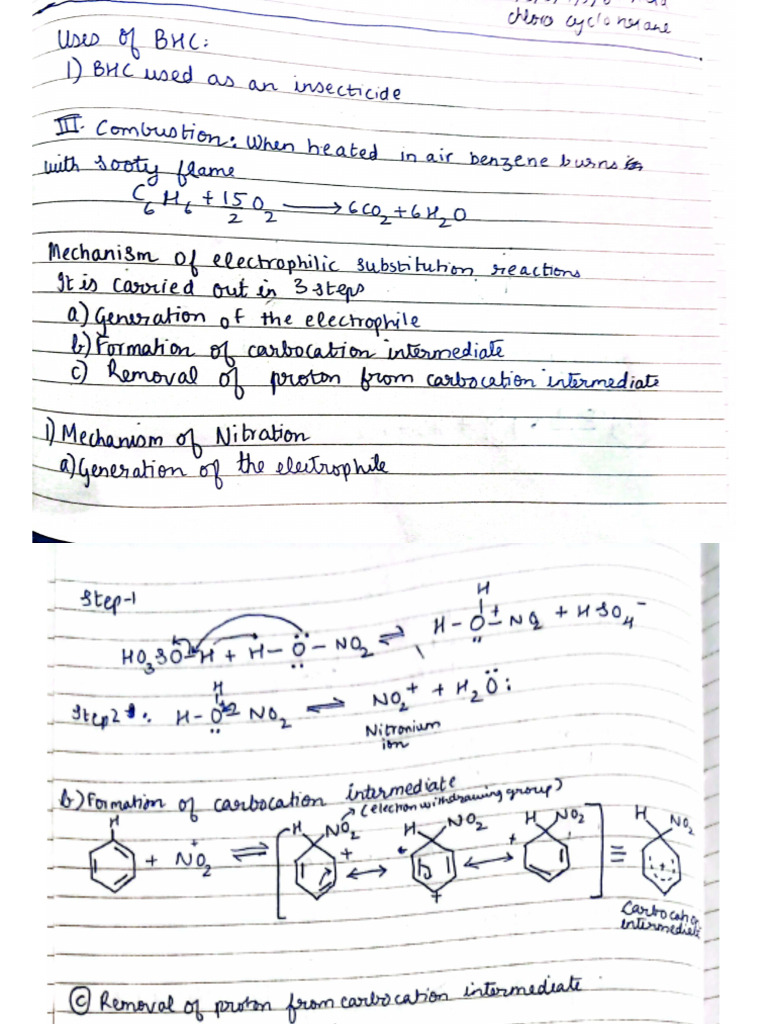 chloro cyclohexane
Uses of BHC:
1) BHC used as an insecticide
III. Combustion: When heated in air benzene burns
with sooty flame
C6H6 + 15/2 O2 → 6CO2 + 6H2O
Mechanism of electrophilic substitution reactions
It is carried out in 3 steps
a) Generation of the electrophile
b) Formation of carbocation intermediate
c) Removal of proton from carbocation intermediate
i) Mechanism of Nitration
a) Generation of the electrophile
Step-1
HO3SO-H + H-O-NO2 ⇌ H-O+(H)-NO2 + HSO4-
Step 2: H-O+(H)-NO2 ⇌ NO2+ + H2O:
Nitronium
ion
b) Formation of carbocation intermediate
(electron withdrawing group)
H + NO2+ ⇌ [H NO2 + ↔ H NO2 + ↔ H NO2 +] ≡ H NO2 +
Carbocation
intermediate
c) Removal of proton from carbocation intermediate